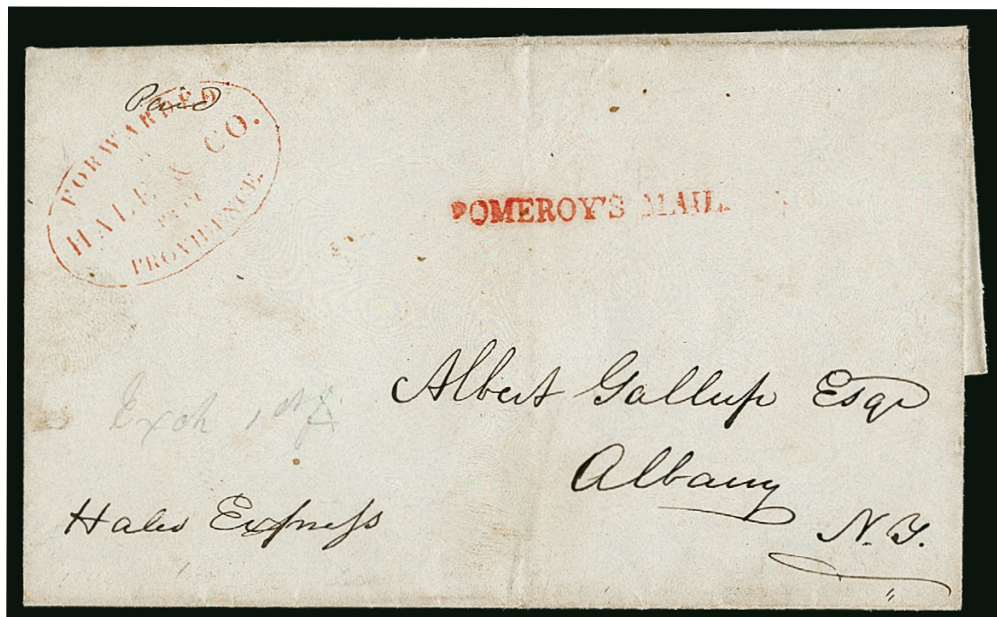 Paid
FORWARDED
HALE & CO.
FROM
PROVIDENCE.
POMEROY'S MAIL.
Albert Gallup Esqr
Albany
N.Y.
Exch
Hales Express